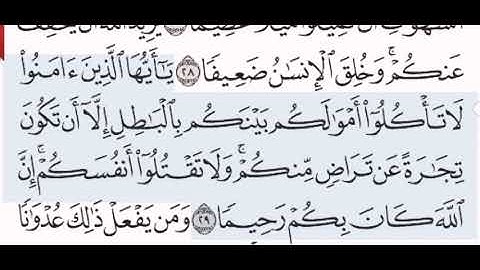 الشَّهَوَٰتِ أَن تَمِيلُوا۟ مَيْلًا عَظِيمًا ٢٧ يُرِيدُ ٱللَّهُ أَن يُخَفِّفَ
عَنكُمْ ۚ وَخُلِقَ ٱلْإِنسَـٰنُ ضَعِيفًا ٢٨ يَـٰٓأَيُّهَا ٱلَّذِينَ ءَامَنُوا۟
لَا تَأْكُلُوٓا۟ أَمْوَٰلَكُم بَيْنَكُم بِٱلْبَـٰطِلِ إِلَّآ أَن تَكُونَ
تِجَـٰرَةً عَن تَرَاضٍ مِّنكُمْ ۚ وَلَا تَقْتُلُوٓا۟ أَنفُسَكُمْ ۚ إِنَّ
ٱللَّهَ كَانَ بِكُمْ رَحِيمًا ٢٩ وَمَن يَفْعَلْ ذَٰلِكَ عُدْوَٰنًا